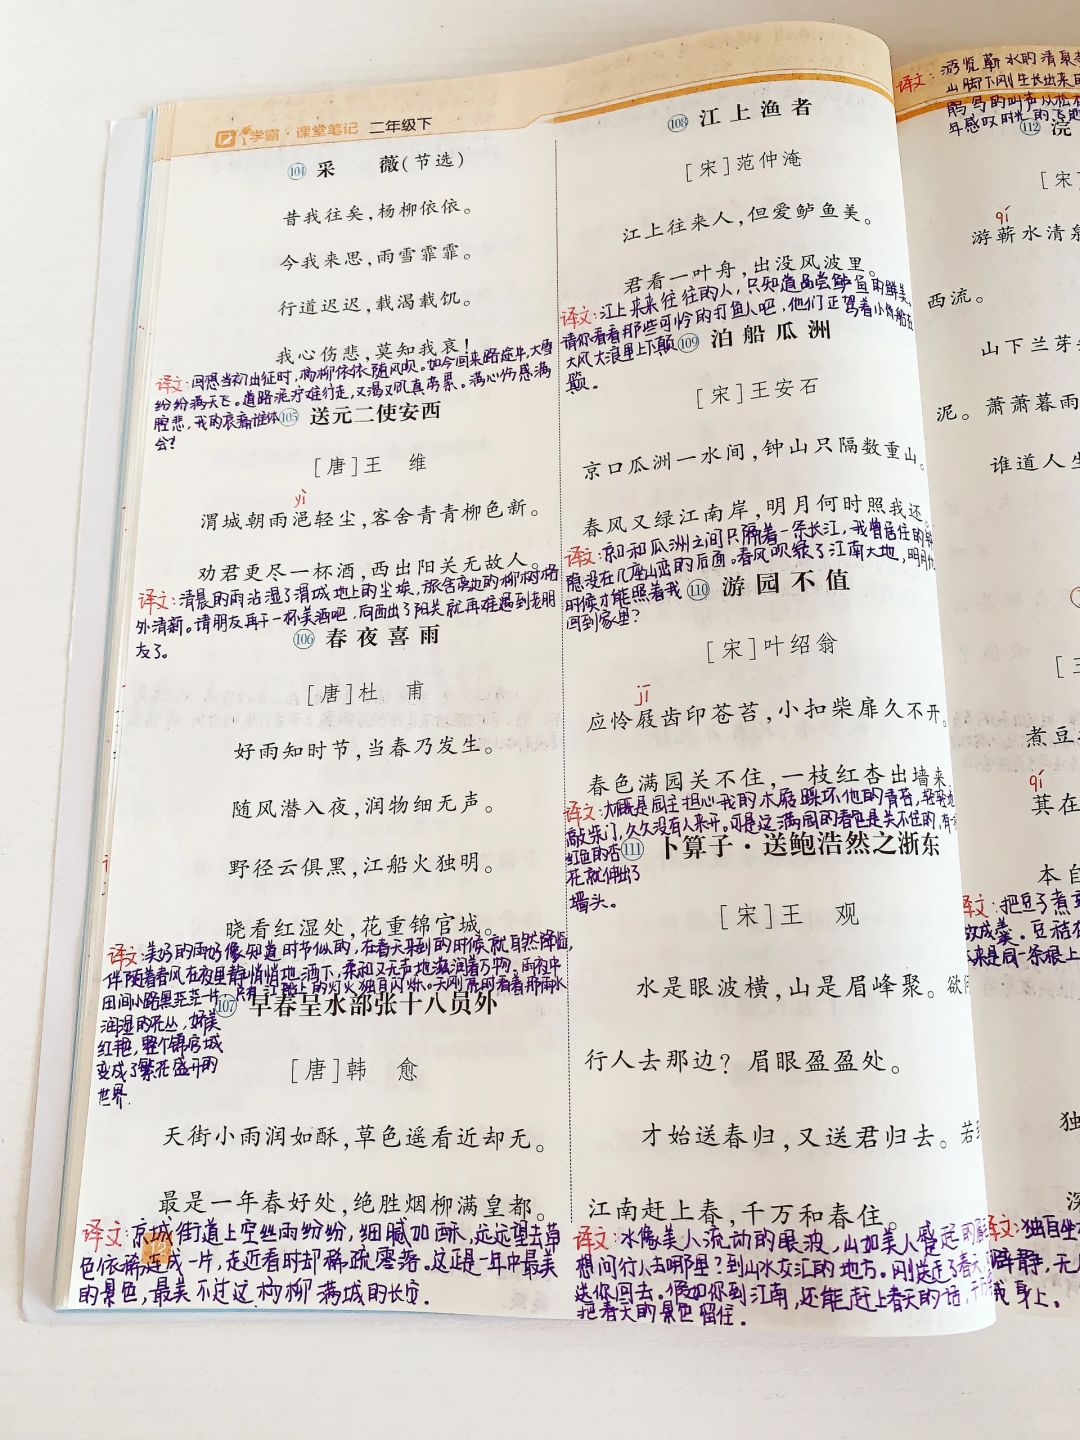 学霸·课堂笔记 二年级下
104 采 薇(节选)
昔我往矣,杨柳依依。
今我来思,雨雪霏霏。
行道迟迟,载渴载饥。
我心伤悲,莫知我哀!
译文:回想当初出征时,杨柳依依随风吹。如今回来路途中,大雪
纷纷满天飞。道路泥泞难行走,又渴又饥真劳累。满心伤感满
腔悲,我的哀痛谁体
会?
105 送元二使安西
[唐]王 维
yì
渭城朝雨浥轻尘,客舍青青柳色新。
劝君更尽一杯酒,西出阳关无故人。
译文:清晨的雨沾湿了渭城地上的尘埃,旅舍旁边的柳树格
外清新。请朋友再干一杯美酒吧,向西出了阳关就再难遇到老朋
友了。
106 春夜喜雨
[唐]杜 甫
好雨知时节,当春乃发生。
随风潜入夜,润物细无声。
野径云俱黑,江船火独明。
晓看红湿处,花重锦官城。
译文:美好的雨好像知道时节似的,在春天来到的时候就自然降临,
伴随着春风在夜里静悄悄地洒下,柔和又无声地滋润着万物。雨夜中
田间小路黑茫茫一片,只有江船上的灯火独自闪烁。天刚亮时看着那雨水
润湿的花丛,娇美
红艳,整个锦官城
变成了繁花盛开的
世界.
107 早春呈水部张十八员外
[唐]韩 愈
天街小雨润如酥,草色遥看近却无。
最是一年春好处,绝胜烟柳满皇都。
译文:京城街道上空丝雨纷纷,细腻如酥,远远望去草
色依稀连成一片,走近看时却稀疏零落。这正是一年中最美
的景色,最美不过这杨柳满城的长安.
12
108 江上渔者
[宋]范仲淹
江上往来人,但爱鲈鱼美。
君看一叶舟,出没风波里。
译文:江上来来往往的人,只知道品尝鲈鱼的鲜美。
请你看看那些可怜的打鱼人吧,他们正驾着小船在
大风大浪里上下颠
簸。
109 泊船瓜洲
[宋]王安石
京口瓜洲一水间,钟山只隔数重山。
春风又绿江南岸,明月何时照我还。
译文:京口和瓜洲之间只隔着一条长江,我曾居住的
隐没在几座山峦的后面。春风吹绿了江南大地,明月什
时候才能照着我
回到家里?
110 游园不值
[宋]叶绍翁
jī
应怜屐齿印苍苔,小扣柴扉久不开。
春色满园关不住,一枝红杏出墙来。
译文:大概是园主担心我的木屐踩坏他的青苔,轻轻地
敲柴门,久久没有人来开。可是这满园的春色是关不住的,有
红色的杏
花就伸出了
墙头。
111 卜算子·送鲍浩然之浙东
[宋]王 观
水是眼波横,山是眉峰聚。欲
行人去那边?眉眼盈盈处。
才始送春归,又送君归去。若
江南赶上春,千万和春住。
译文:水像美人流动的眼波,山如美人蹙起的
想问行人去哪里?到山水交汇的地方。刚送走了春天
送你回去。假如你到江南,还能赶上春天的话,千万
把春天的景色留住.
译文:游览蕲水的清泉
山脚下刚生长出来的
的叫声从松林
年感叹时光的飞
112 浣
[宋
qí
游蕲水清泉
西流。
山下兰芽
泥。萧萧暮雨
谁道人生
煮豆
qí
萁在
本自
译文:把豆子煮
做成羹。豆秸在
本来是同一条根上
独
深
译文:独自坐在
僻静,无人
我身上。